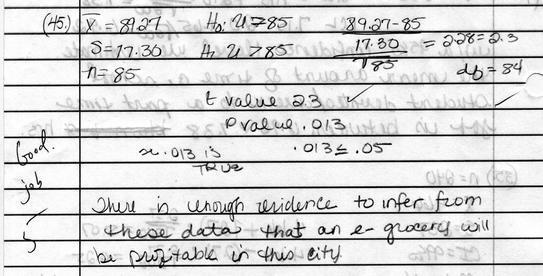 (45.) X̄ = 89.27 H₀: μ = 85 89.27-85
S = 17.30 H₁ μ > 85 17.30 = 2.28 = 2.3
n = 85. √85 df = 84
t value 2.3 ✓
P value .013
.013 is .013 ≤ .05
TRUE
Good
job
5
There is enough evidence to infer from
these data that an e-grocery will
be profitable in this city.